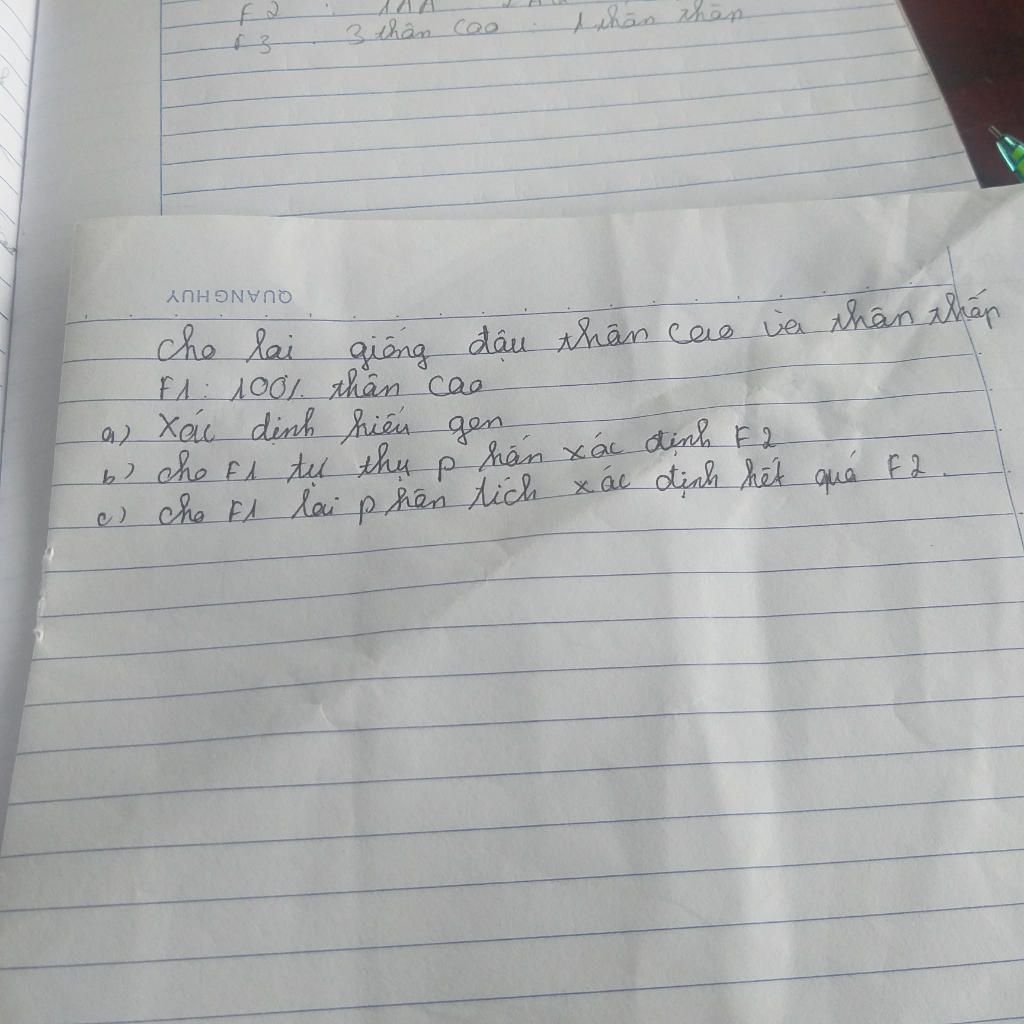 F2 : 1AA
F3 : 3 thân cao : 1 thân thân
QUANG HUY
Cho lai giống đậu thân cao và thân thấp
F1: 100% thân cao
a) Xác dịnh kiểu gen
b) cho F1 tự thụ phấn xác định F2
c) cho F1 lai phân tích xác định kết quả F2.